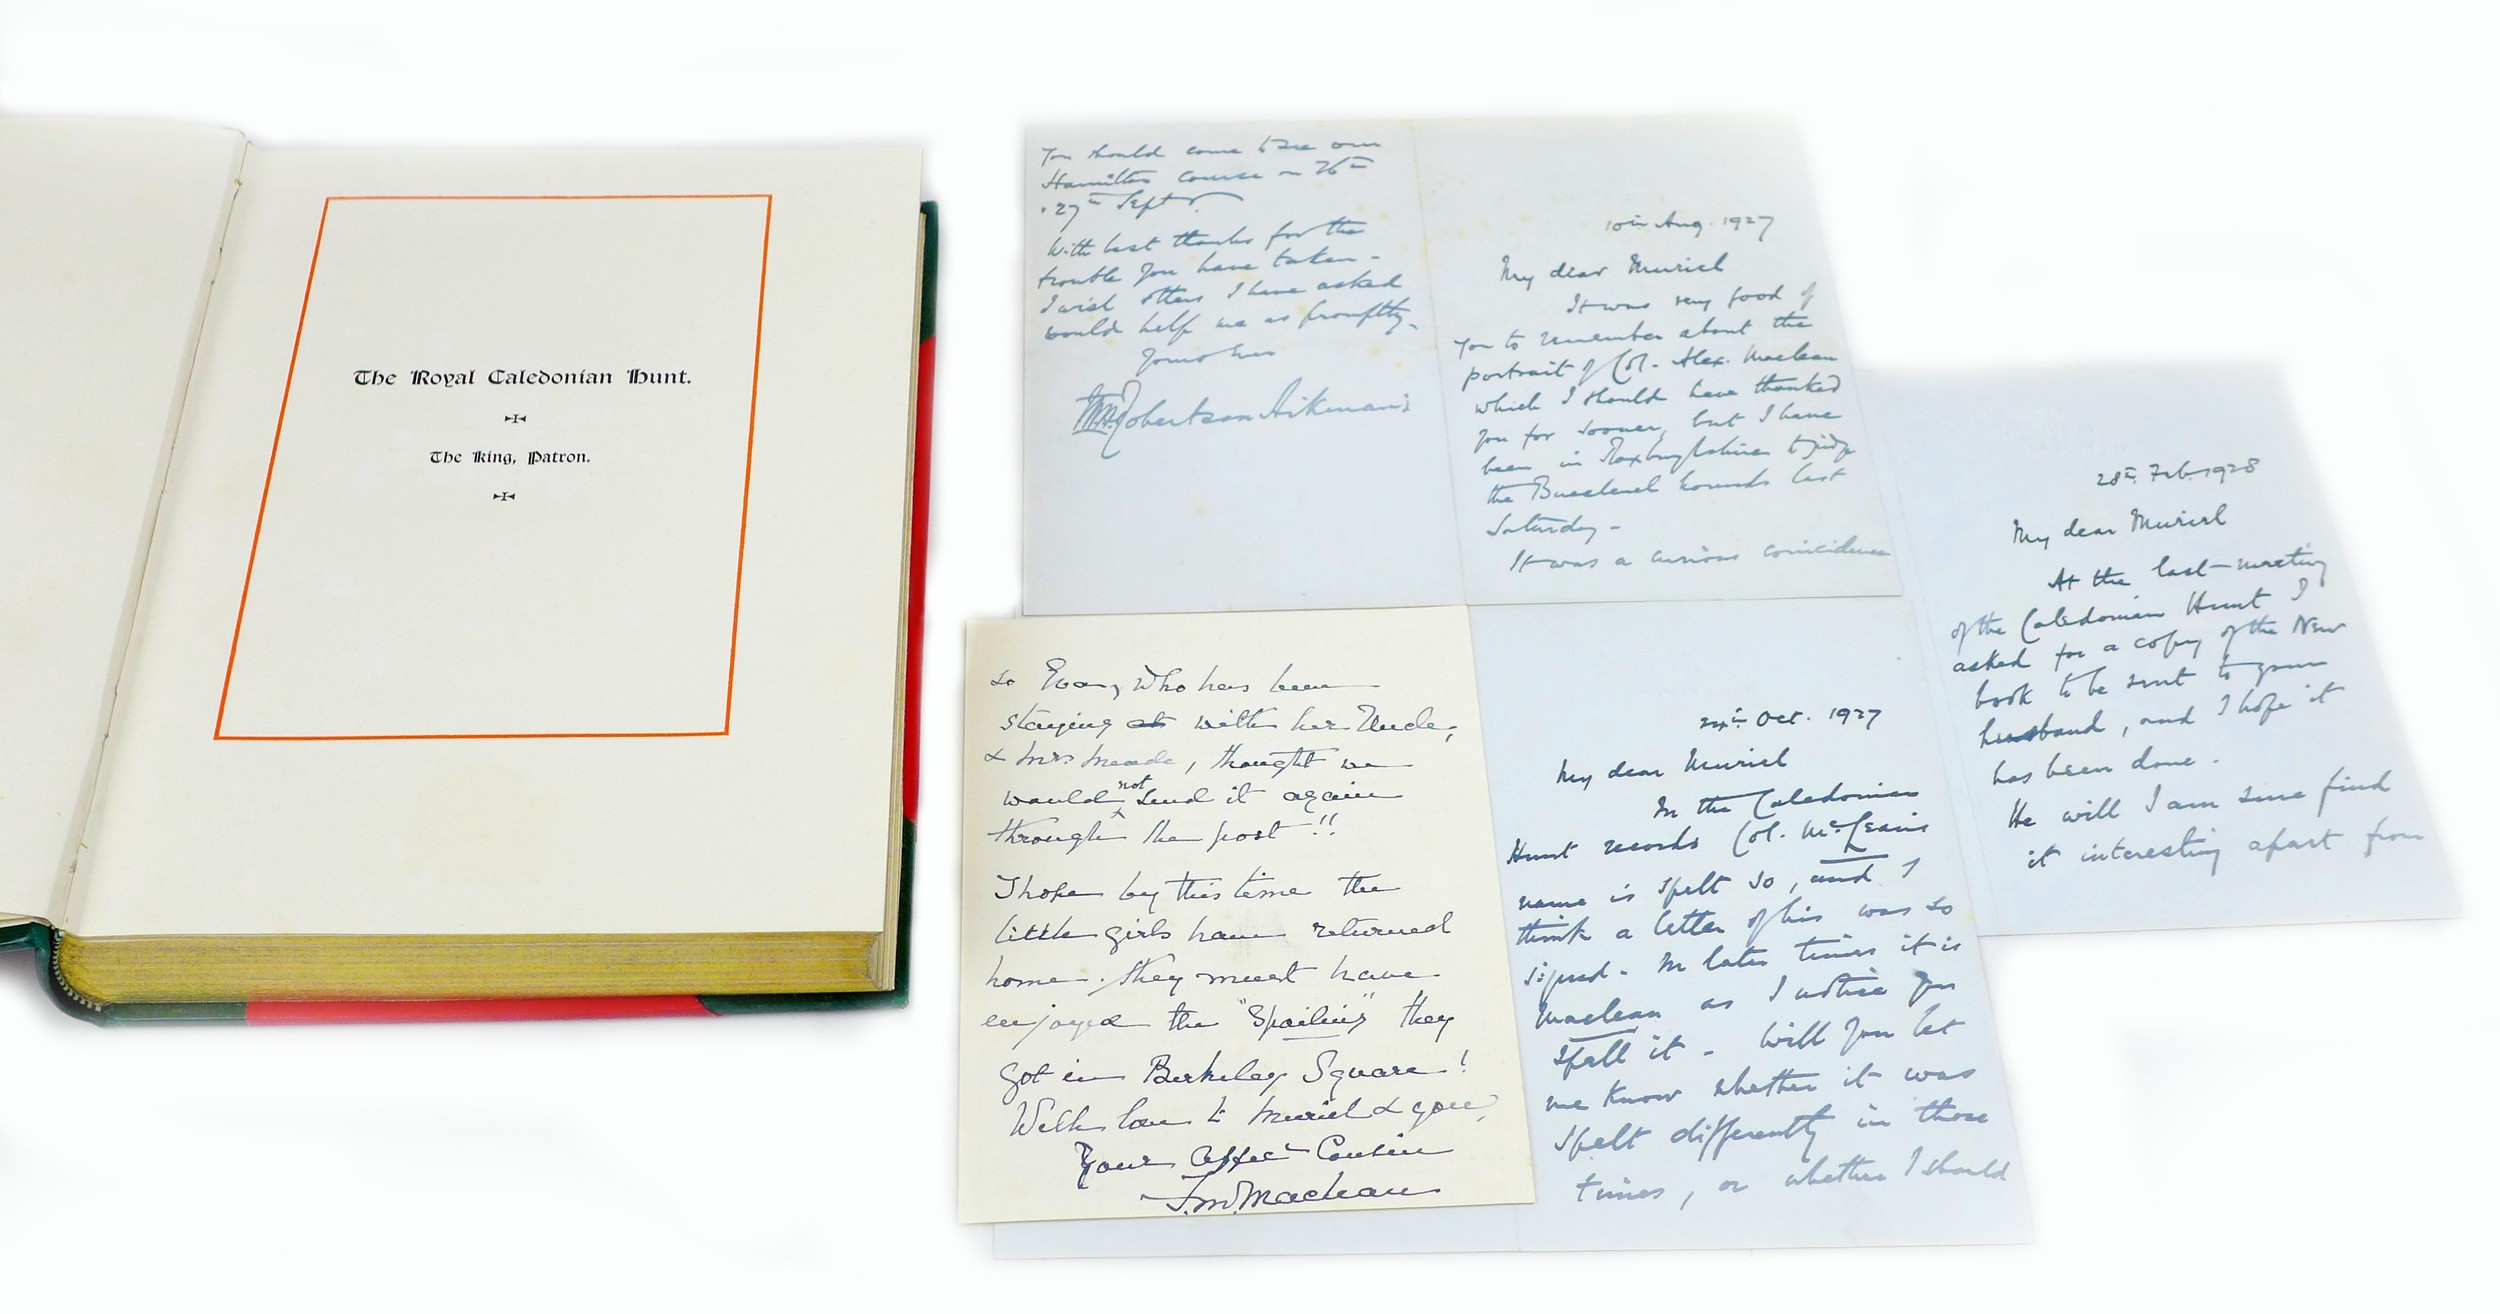 The Royal Caledonian Hunt.
The King, Patron.
You should come to see our
Hamilton course on 26th
27th Sept.
With best thanks for the
trouble you have taken -
I wish others I have asked
would help me as promptly.
Yours ever
Robertson Aikman
10th Aug. 1927
My dear Muriel
It was very good of
you to remember about the
portrait of Col. Alex. Maclean
which I should have thanked
you for sooner, but I have
been in Roxburghshire to judge
the Buccleuch hounds last
Saturday -
It was a curious coincidence
so Evan, who has been
staying at with her Uncle,
& Mrs Meade, thought we
would not send it again
through the post!!
I hope by this time the
little girls have returned
home. They must have
enjoyed the "Spoiling" they
got in Berkeley Square!
With love to Muriel & you,
Your affec Cousin
F.M. Maclean
24th Oct. 1927
My dear Muriel
In the Caledonian
Hunt records Col. McLean's
name is spelt so, and I
think a letter of his was so
signed - In later times it is
Maclean as I notice you
spell it - Will you let
me know whether it was
spelt differently in those
times, or whether I should
28th Feb. 1928
My dear Muriel
At the last meeting
of the Caledonian Hunt I
asked for a copy of the New
book to be sent to your
husband, and I hope it
has been done.
He will I am sure find
it interesting apart from